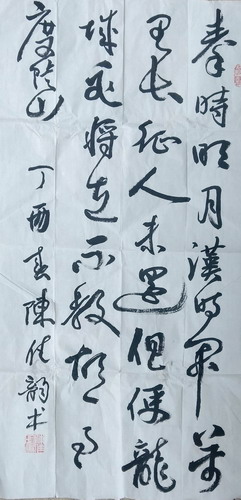 秦時明月漢時關萬
里长征人未還但使龍
城飛將在不教胡馬
度陰山
丁酉春陳